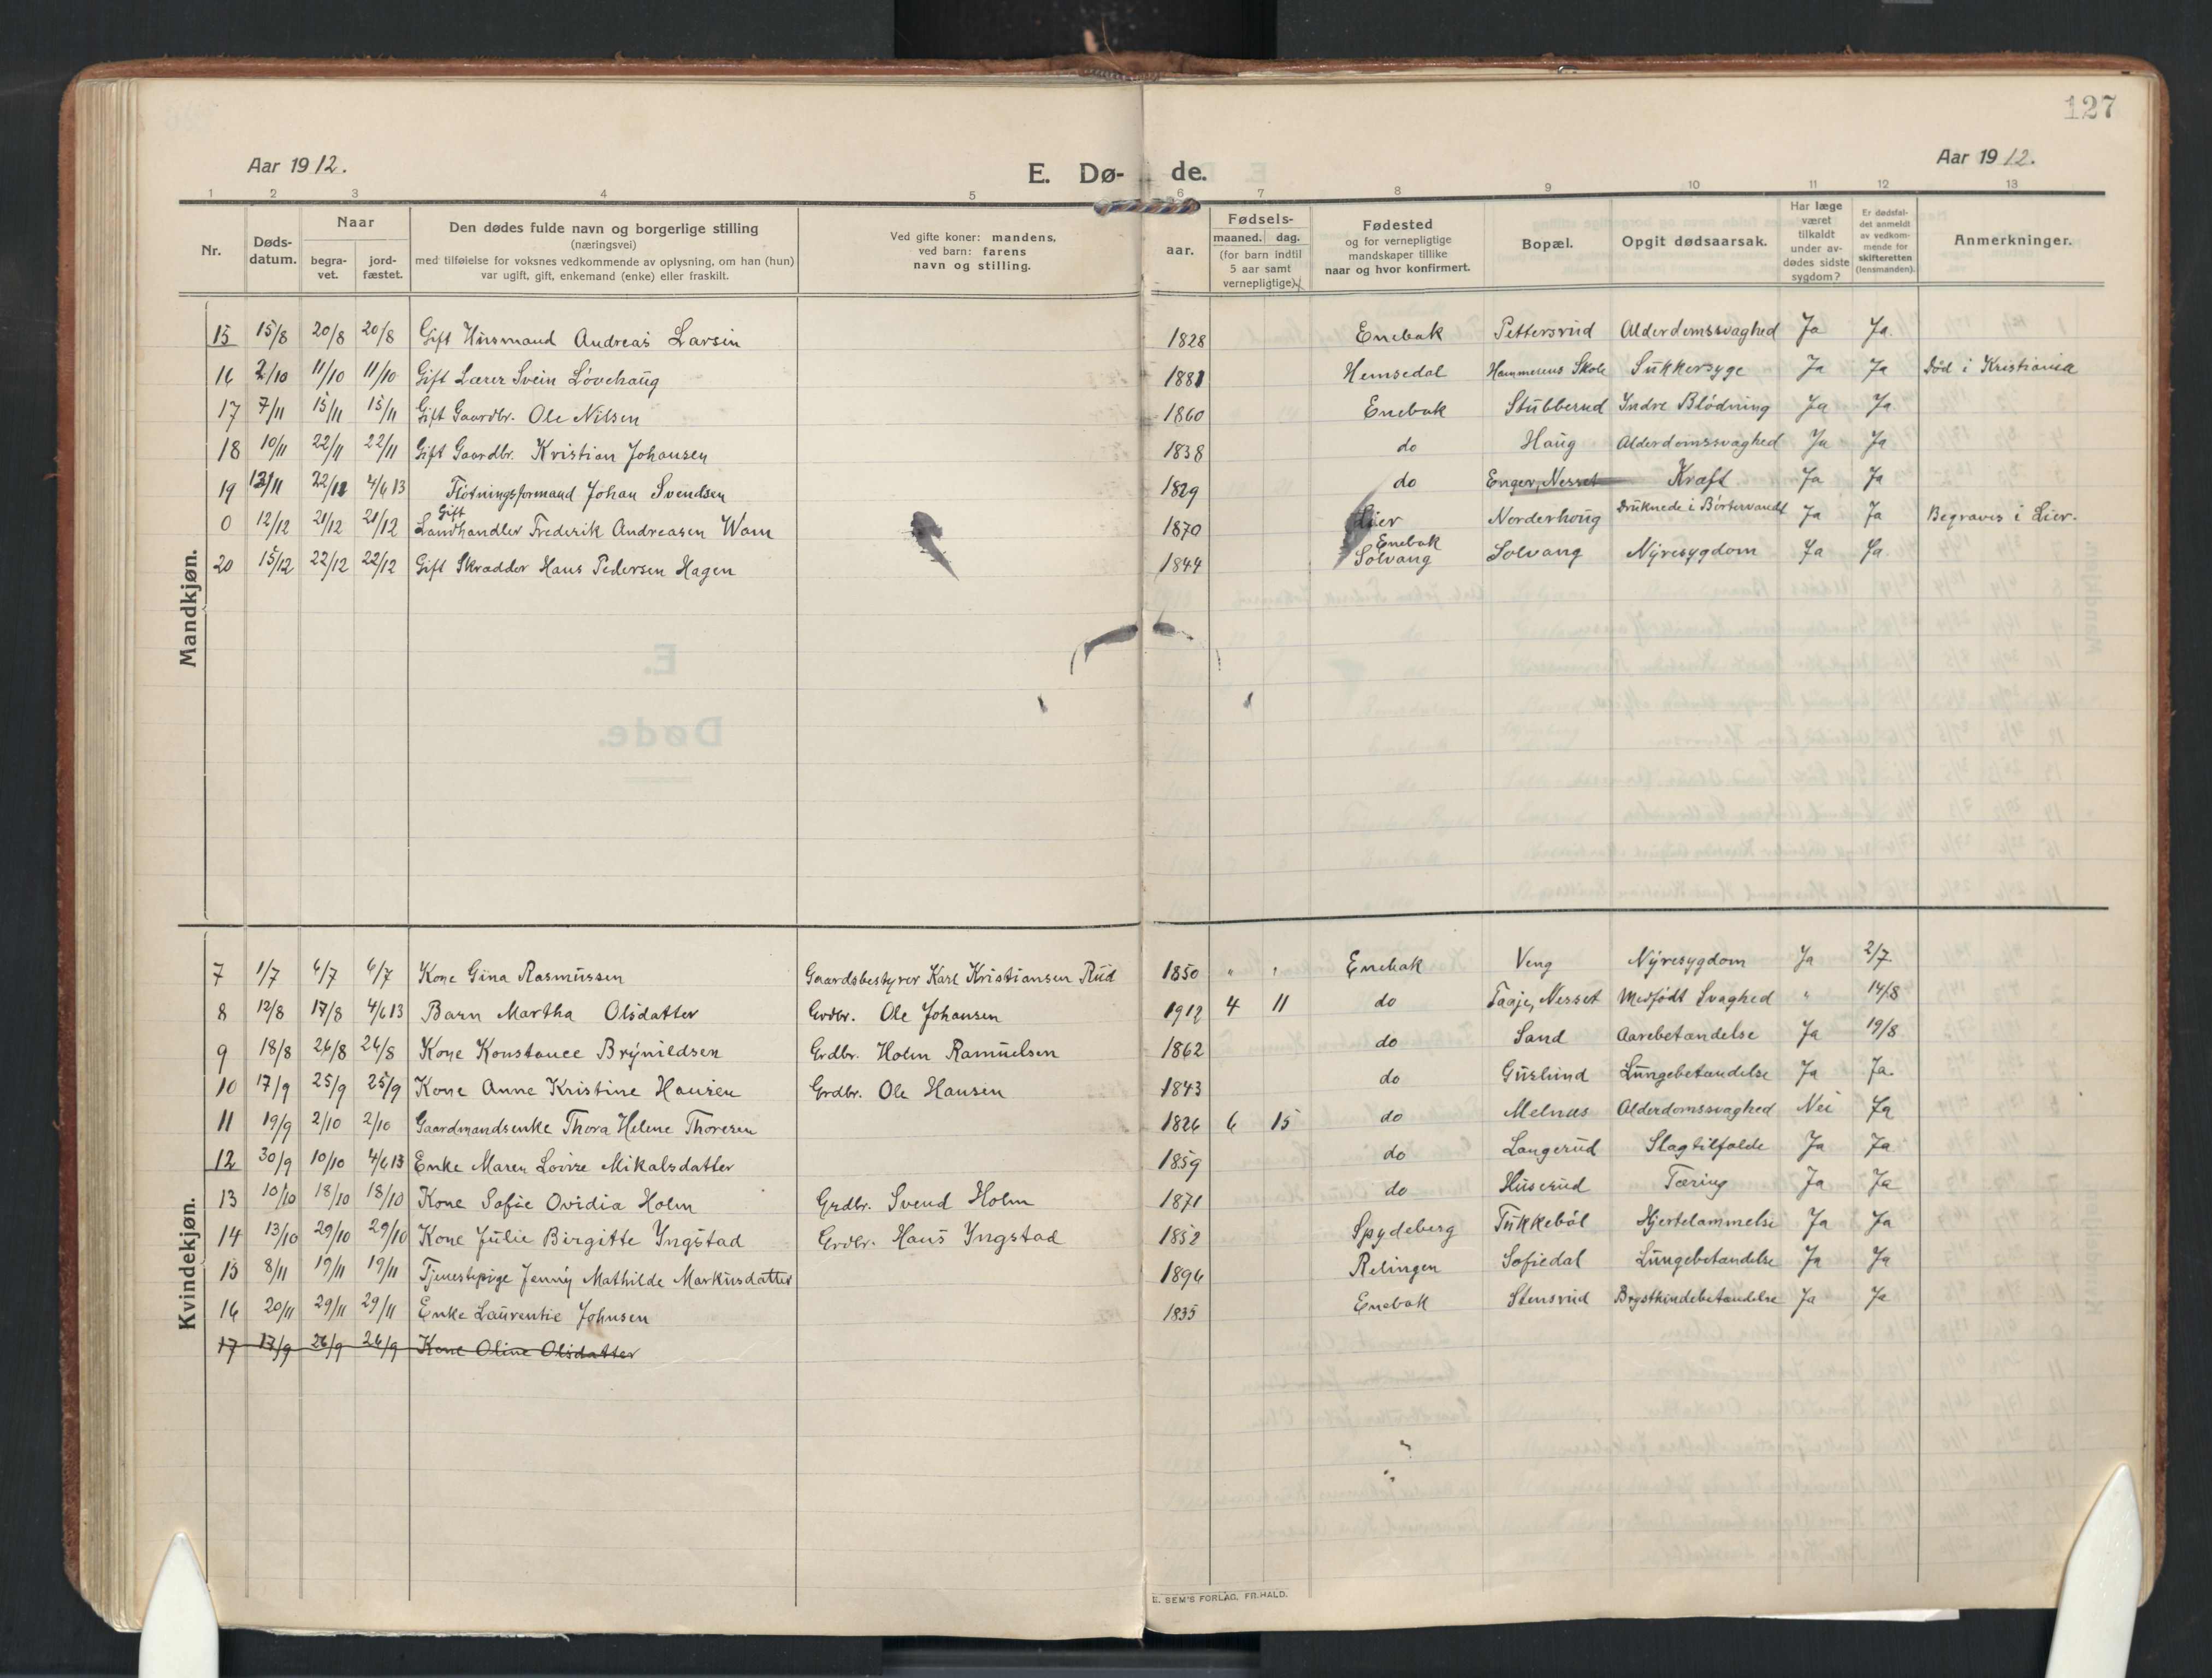 127
Aar 1912.
E. Dø- de.
Aar 1912.
1 2 3 4 5 6 7 8 9 10 11 12 13
Nr.
Døds-
datum.
Naar
begra-
vet.
jord-
fæstet.
Den dødes fulde navn og borgerlige stilling
(næringsvei)
med tilføielse for voksnes vedkommende av oplysning, om han (hun)
var ugift, gift, enkemand (enke) eller fraskilt.
Ved gifte koner: mandens,
ved barn: farens
navn og stilling.
Fødsels-
aar.
maaned. dag.
(for barn indtil
5 aar samt
vernepligtige)
Fødested
og for vernepligtige
mandskaper tillike
naar og hvor konfirmert.
Bopæl.
Opgit dødsaarsak.
Har læge
været
tilkaldt
under av-
dødes sidste
sygdom?
Er dødsfal-
det anmeldt
av vedkom-
mende for
skifteretten
(lensmanden).
Anmerkninger.
Mandkjøn.
15 15/8 20/8 20/8 Gift Husmand Andreas Larsen 1828 Enebak Pettersrud Alderdomssvaghed Ja Ja.
16 2/10 11/10 11/10 Gift Lærer Svein Løvehaug 1881 Hemsedal Hammerens Skole Sukkersyge Ja Ja Død i Kristiania
17 7/11 15/11 15/11 Gift Gaardbr. Ole Nilsen 1860 Enebak Stubberud Indre Blødning Ja Ja
18 10/11 22/11 22/11 Gift Gaardbr. Kristian Johansen 1838 do Haug Alderdomssvaghed Ja Ja
19 22/12 4/6 13 Fløtningsformand Johan Svendsen 1829 do Enger, Nesset Kræft Ja Ja
0 12/12 21/12 21/12 Gift Landhandler Frederik Andreasen Wam 1870 Lier Norderhoug Druknede i Børtervandt Ja Ja Begraves i Lier.
20 15/12 22/12 22/12 Gift Skrædder Hans Pedersen Hagen 1844 Enebak Solvang Solvang Nyresygdom Ja Ja.
Kvindekjøn.
7 1/7 6/7 6/7 Kone Gina Rasmussen Gaardsbestyrer Karl Kristiansen Rud 1850 " " Enebak Veng Nyresygdom Ja 2/7
8 12/8 17/8 4/6 13 Barn Martha Olsdatter Grdbr. Ole Johansen 1912 4 11 do Taaje, Nesset Medfødt Svaghed " 14/8
9 18/8 26/8 26/8 Kone Konstance Brynildsen Grdbr. Holm Ramuelsen 1862 do Sand Aarebetændelse Ja 19/8
10 17/9 25/9 25/9 Kone Anne Kristine Hansen Grdbr. Ole Hansen 1843 do Guslund Lungebetændelse Ja Ja.
11 19/9 2/10 2/10 Gaardmandsenke Thora Helene Thoresen 1826 6 15 do Melnæs Alderdomssvaghed Nei Ja
12 30/9 10/10 4/6 13 Enke Maren Lovise Mikalsdatter 1859 do Langerud Slagtilfælde Ja Ja
13 10/10 18/10 18/10 Kone Sofie Ovidia Holm Grdbr. Svend Holm 1871 do Huserud Tæring Ja Ja
14 13/10 29/10 29/10 Kone Julie Birgitte Yngstad Grdbr. Hans Yngstad 1852 Spydeberg Tukkebøl Hjertelammelse Ja Ja
15 8/11 19/11 19/11 Tjenestepige Jenny Mathilde Markusdatter 1896 Relingen Sofiedal Lungebetændelse Ja Ja
16 20/11 29/11 29/11 Enke Laurentie Johnsen 1835 Enebak Stensrud Brysthindebetændelse Ja Ja
17 17/9 26/9 26/9 Kone Oline Olsdatter
E. SEM'S FORLAG, FR.HALD.